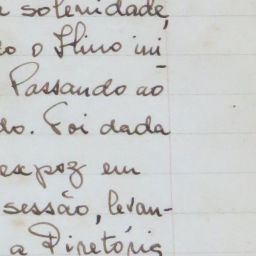 a solenidade,
o o Hino ini-
Passando ao
do. Foi dada
expoz em
sessão, levan-
a Diretória